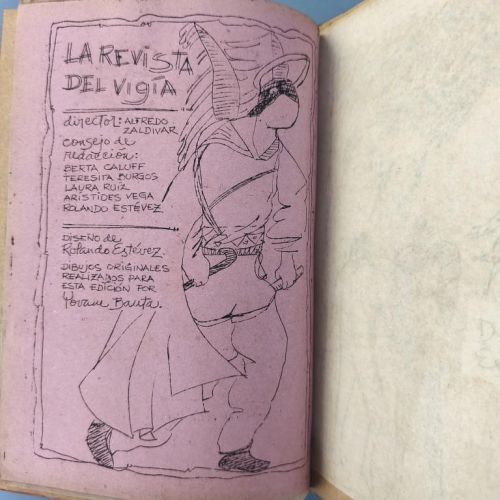 LA REVISTA
DEL VIGÍA
director: ALFREDO
ZALDIVAR
consejo de
redacción:
BERTA CALUFF
TERESITA BURGOS
LAURA RUIZ
ARISTIDES VEGA
ROLANDO ESTÉVEZ
DISEÑO de
Rolando Estévez.
DIBUJOS ORIGINALES
REALIZADOS PARA
ESTA EDICIÓN POR
Bauta.